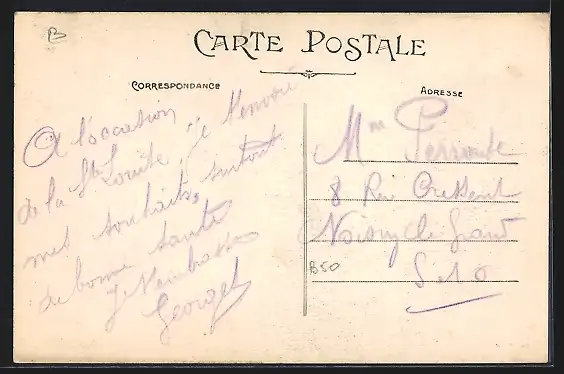 B
CARTE POSTALE
CORRESPONDANCE
ADRESSE
A l'occasion
de la Ste Louise, je t'envoie
mes souhaits, surtout
de bonne santé
Je t'embrasse
Georges
Mme
8 Rue Cressent
Noisy le Grand
S et O
B50